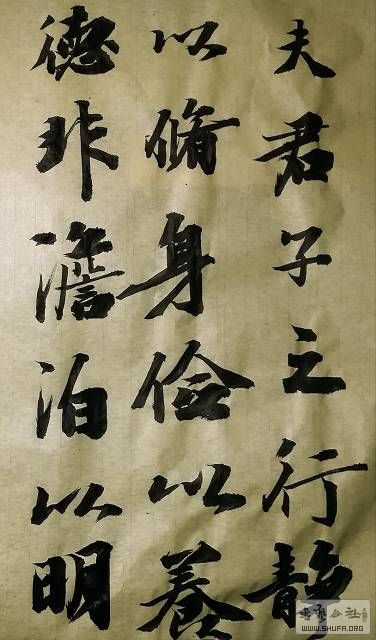 夫君子之行静
以脩身俭以养
德非澹泊以明
WWW.SHUFA.ORG